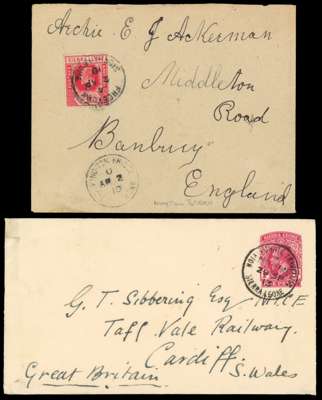 Archie E J Ackerman
Middleton
Road
Banbury
England
FREETOWN
G. T. Sibbering Esq M.I.C.E
Taff Vale Railway.
Cardiff.
Great Britain S. Wales
SIERRA LEONE